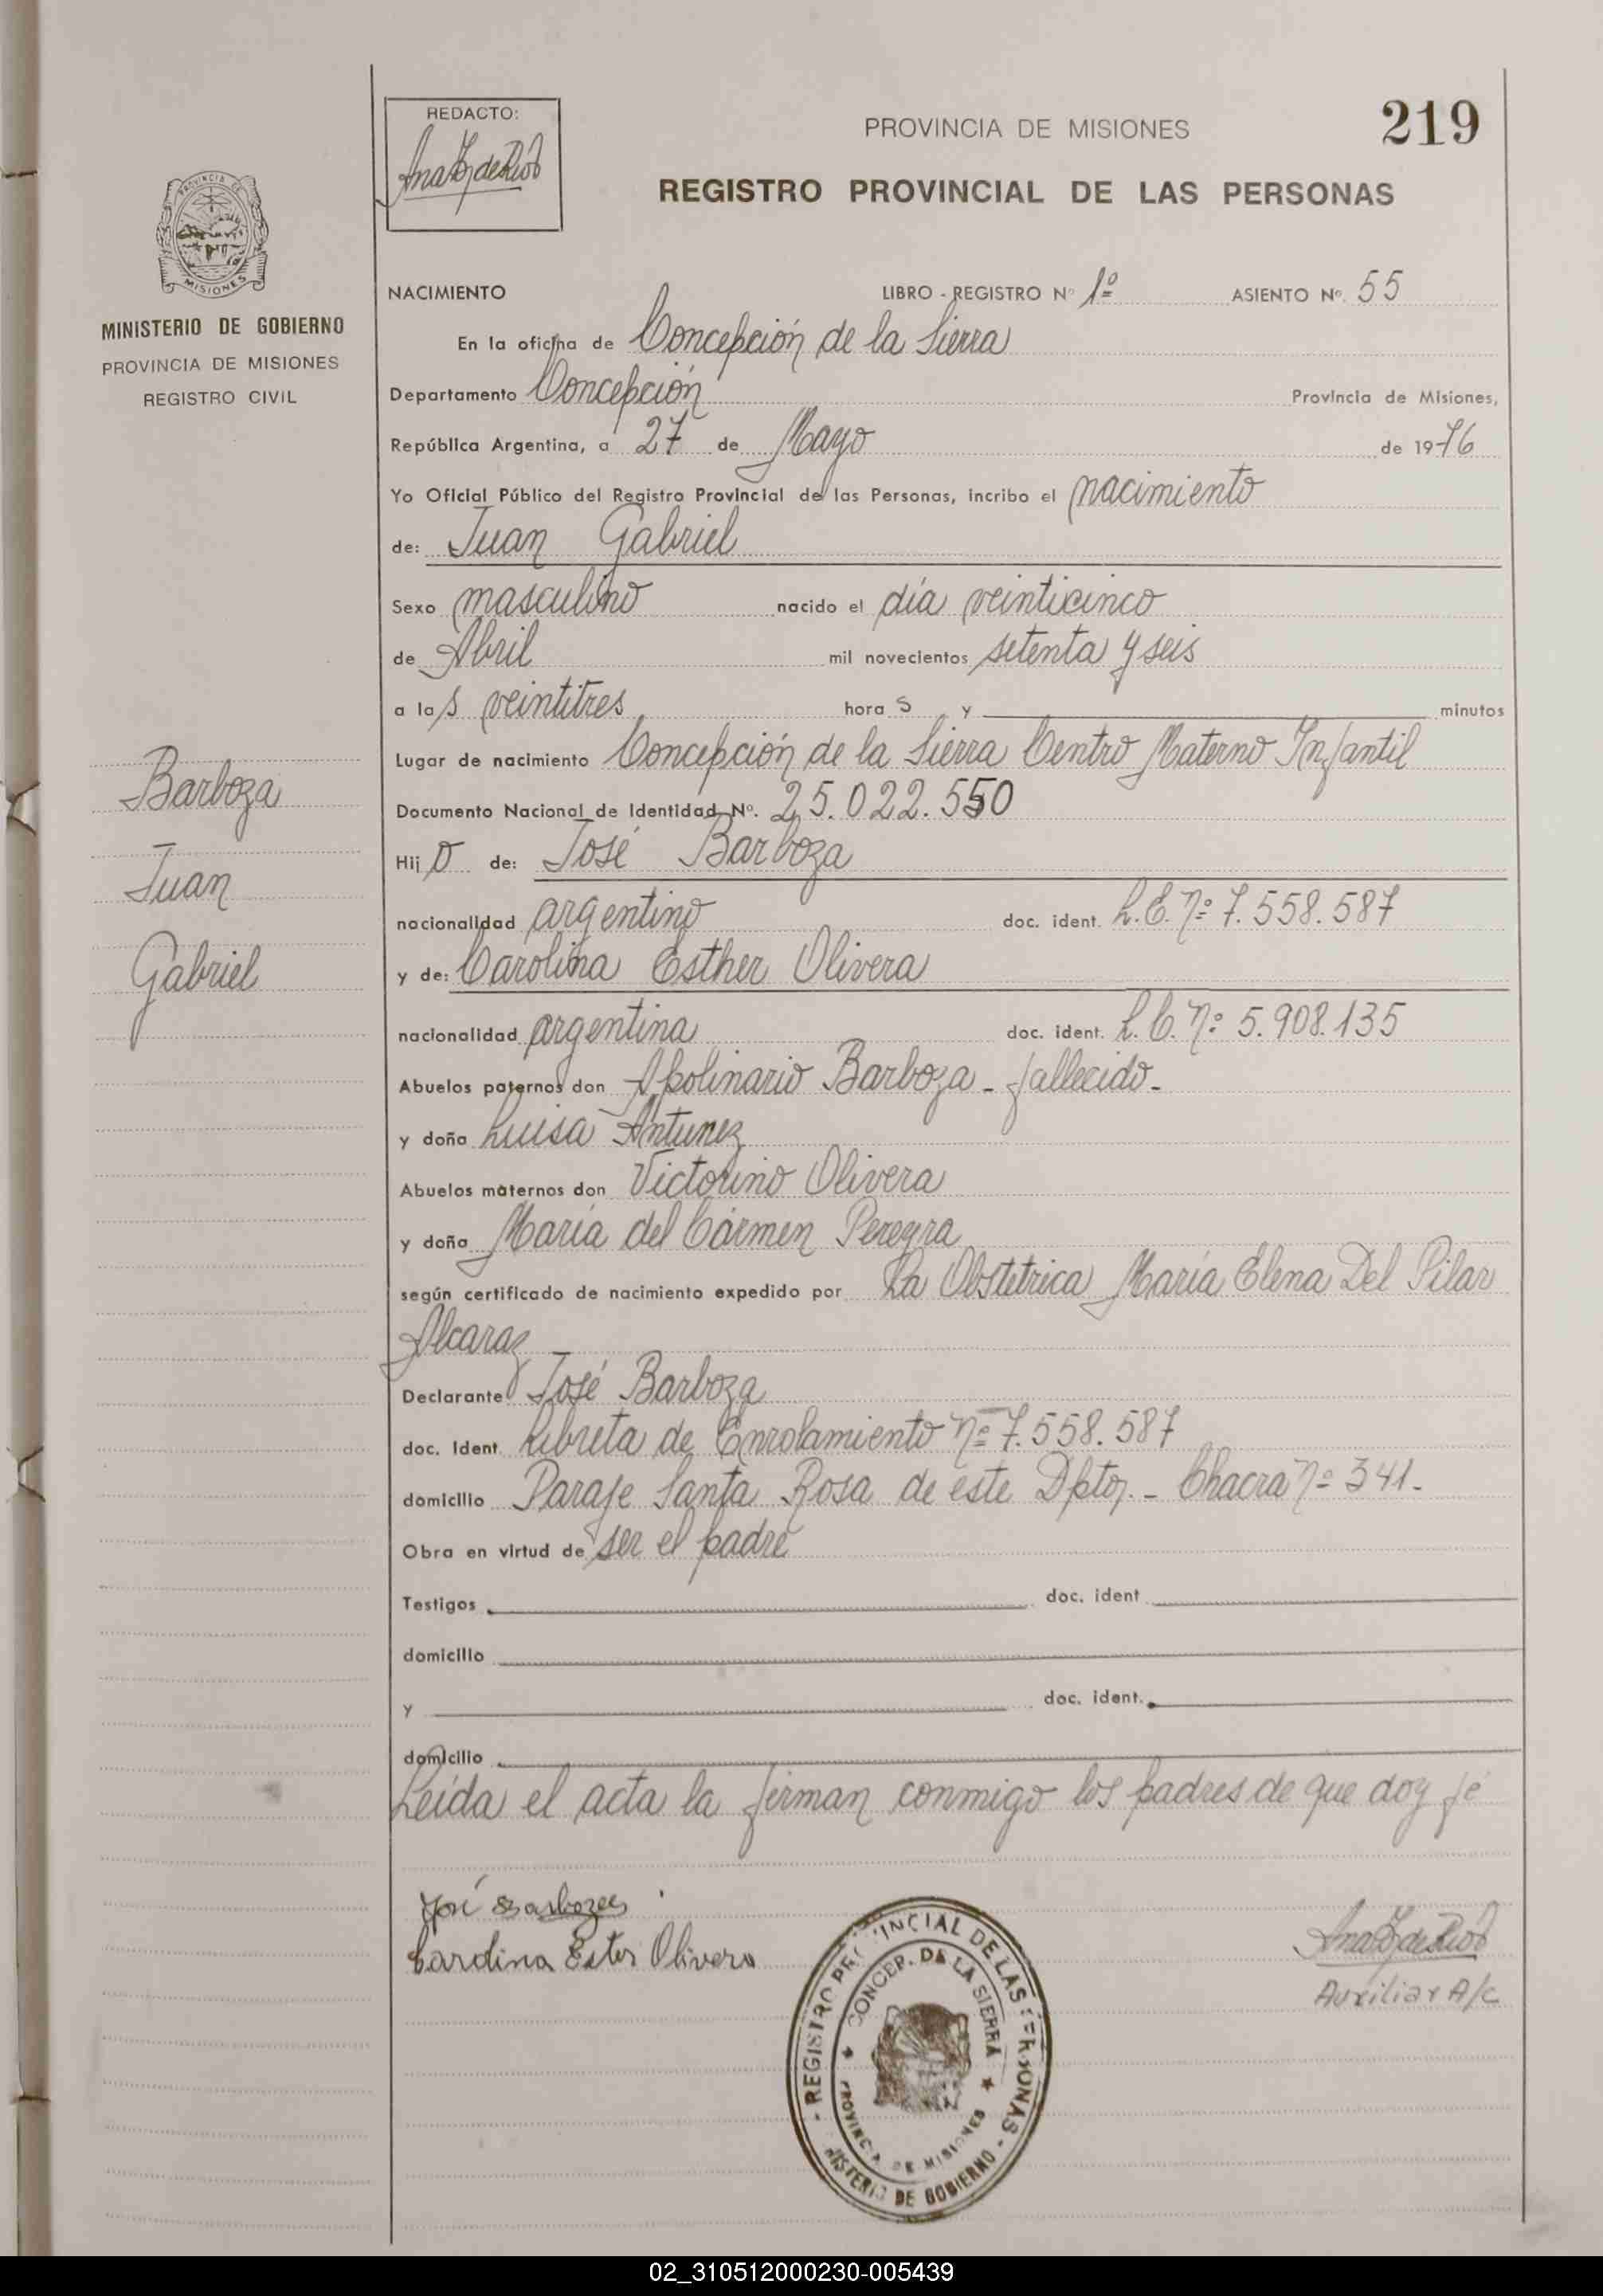 REDACTO:
PROVINCIA DE MISIONES
219
REGISTRO PROVINCIAL DE LAS PERSONAS
PROVINCIA DE
MISIONES
MINISTERIO DE GOBIERNO
PROVINCIA DE MISIONES
REGISTRO CIVIL
NACIMIENTO LIBRO - REGISTRO Nº 1º ASIENTO Nº 55
En la oficina de Concepción de la Sierra
Departamento Concepción Provincia de Misiones,
República Argentina, a 27 de Mayo de 1976
Yo Oficial Público del Registro Provincial de las Personas, incribo el nacimiento
de: Juan Gabriel
Sexo masculino nacido el día veinticinco
de Abril mil novecientos setenta y seis
a las veintitres horas y minutos
Lugar de nacimiento Concepción de la Sierra Centro Materno Infantil
Documento Nacional de Identidad Nº. 25.022.550
Hijo de: José Barboza
nacionalidad argentino doc. ident. L.E. Nº 7.558.587
y de: Carolina Esther Olivera
nacionalidad argentina doc. ident. L.C. Nº 5.908.135
Abuelos paternos don Apolinario Barboza - fallecido -
y doña Luisa Antunez
Abuelos maternos don Victorino Olivera
y doña María del Cármen Pereyra
según certificado de nacimiento expedido por La Obstetrica María Elena Del Pilar
Alcaraz
Declarante José Barboza
doc. Ident Libreta de Enrolamiento Nº 7.558.587
domicilio Paraje Santa Rosa de este Dpto. - Chacra Nº 341.
Obra en virtud de ser el padre
Testigos doc. ident
domicilio
y doc. ident.
domicilio
Leída el acta la firman conmigo los padres de que doy fé
Barboza
Juan
Gabriel
José Barboza
Carolina Ester Olivera
Auxiliar A/c
REGISTRO PROVINCIAL DE LAS PERSONAS
CONCEP. DE LA SIERRA
PROVINCIA DE MISIONES
MINISTERIO DE GOBIERNO
02_310512000230-005439